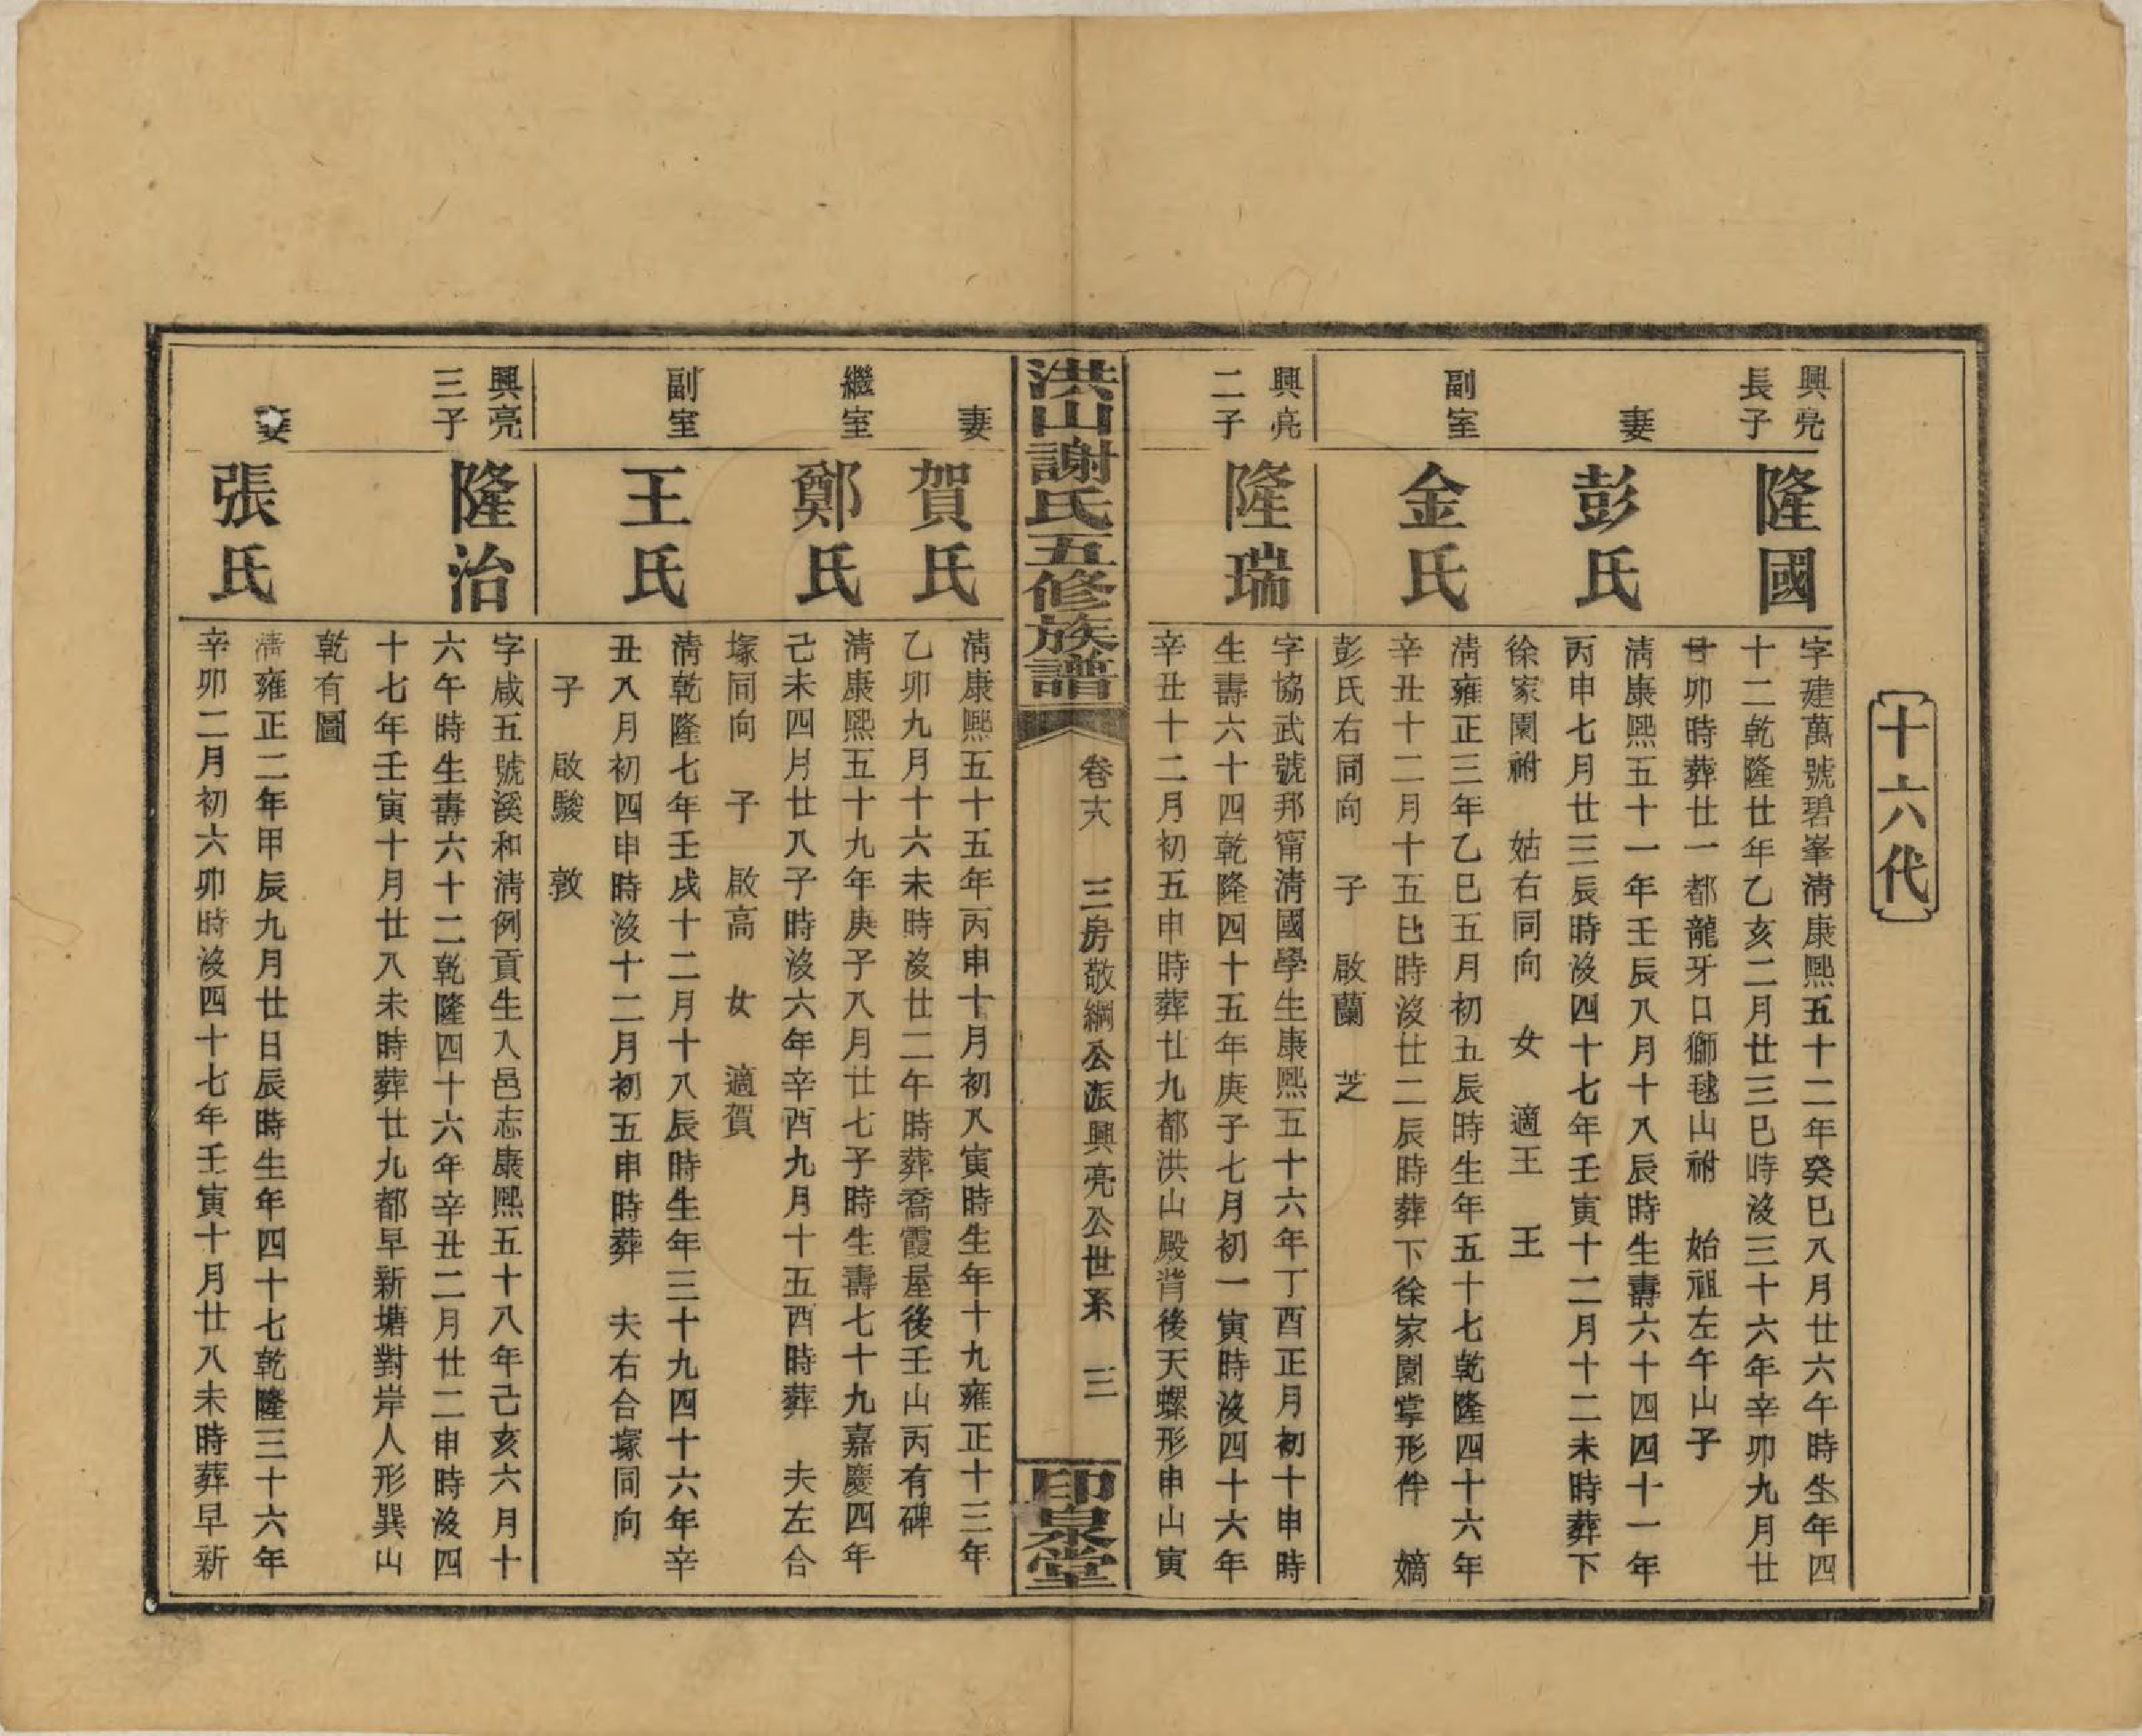 十六代
興亮
長子
隆國
字建萬號碧峯淸康熙五十二年癸巳八月廿六午時生年四
十二乾隆廿年乙亥二月廿三巳時沒三十六年辛卯九月廿
廿卯時葬廿一都龍牙口獅毬山祔　始祖左午山子
妻
彭氏
淸康熙五十一年壬辰八月十八辰時生壽六十四四十一年
丙申七月廿三辰時沒四十七年壬寅十二月十二未時葬下
徐家園祔　姑右同向　女　適王　王
副室
金氏
淸雍正三年乙巳五月初五辰時生年五十七乾隆四十六年
辛丑十二月十五巳時沒廿二辰時葬下徐家園掌形件　嫡
彭氏右同向　子　啟蘭　芝
興亮
二子
隆瑞
字協武號邦甯淸國學生康熙五十六年丁酉正月初十申時
生壽六十四乾隆四十五年庚子七月初一寅時沒四十六年
辛丑十二月初五申時葬廿九都洪山殿背後天螺形申山寅
洪山謝氏五修族譜
卷十六　三房敬綱公派興亮公世系　三
印泉堂
妻
賀氏
淸康熙五十五年丙申十月初八寅時生年十九雍正十三年
乙卯九月十六未時沒廿二午時葬喬霞屋後壬山丙有碑
繼室
鄭氏
淸康熙五十九年庚子八月廿七子時生壽七十九嘉慶四年
己未四月廿八子時沒六年辛酉九月十五酉時葬　夫左合
塚同向　子　啟高　女　適賀
副室
王氏
淸乾隆七年壬戌十二月十八辰時生年三十九四十六年辛
丑八月初四申時沒十二月初五申時葬　夫右合塚同向
子　啟駿　敦
興亮
三子
隆治
字咸五號溪和淸例貢生入邑志康熙五十八年己亥六月十
六午時生壽六十二乾隆四十六年辛丑二月廿二申時沒四
十七年壬寅十月廿八未時葬廿九都早新塘對岸人形巽山
乾有圖
妻
張氏
淸雍正二年甲辰九月廿日辰時生年四十七乾隆三十六年
辛卯二月初六卯時沒四十七年壬寅十月廿八未時葬早新